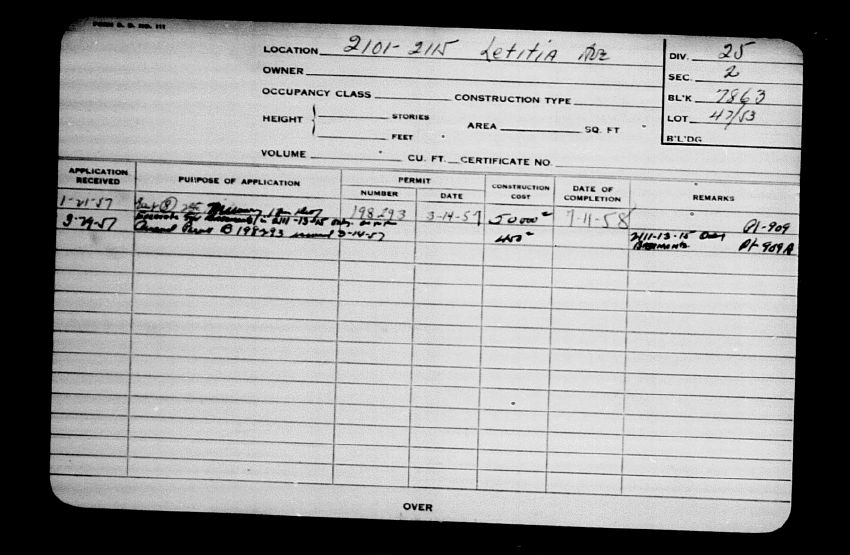 FORM B. D. NO. 111
LOCATION 2101-2115 Letitia Ave
DIV. 25
OWNER
SEC. 2
OCCUPANCY CLASS CONSTRUCTION TYPE
BL'K 7863
HEIGHT STORIES
FEET
AREA SQ. FT
LOT 47/53
B'L'DG
VOLUME CU. FT. CERTIFICATE NO.
APPLICATION RECEIVED PURPOSE OF APPLICATION PERMIT NUMBER DATE CONSTRUCTION COST DATE OF COMPLETION REMARKS
1-21-57 198293 3-14-57 50000 7-11-58 Pt-909
3-29-57 Amend Permit B 198293 issued 3-14-57 450 2111-13-15 Only
Basements Pt-909A
OVER